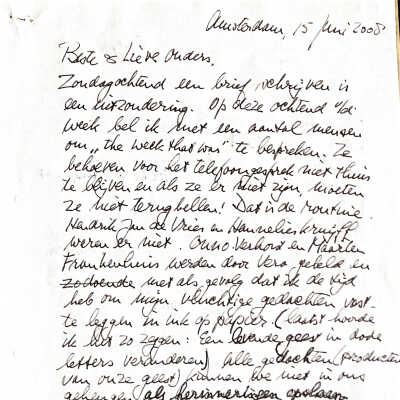 Amsterdam, 15 juni 2008
Beste & Lieve Ouders.
Zondagochtend een brief schrijven is
een uitzondering. Op deze ochtend v/d
week bel ik met een aantal mensen
om „the week that was" te bespreken. Ze
behoeven voor het telefoongesprek niet thuis
te blijven en als ze er niet zijn, moeten
ze niet terugbellen! Dat is de routine.
Hendrik Jan de Vries en Hannelies Kruijff
waren er niet. Onno Verhorst en Maarten
Frankenhuis werden door Vera gebeld en
zodoende met als gevolg dat ik de tijd
heb om mijn vluchtige gedachten vast
te leggen in inkt op papier. (laatst hoorde
ik het zo zeggen: Een levende geest in dode
letters veranderen) Alle gedachten (producten
van onze geest) kunnen we niet in ons
geheugen als herinneringen opslaan